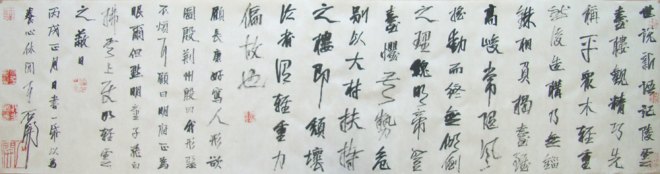 世說新語記陵雲
臺樓觀精巧先
稱平衆木輕重
然後造構乃無錙
銖相負揭臺雖
高峻常隨風
搖動而終無傾倒
之理魏明帝登
臺懼其勢危
別以大材扶持
之樓即頹壞
論者謂輕重力
偏故也
顧長康好寫人形欲
圖殷荆州殷曰我形惡
不煩耳顧曰明府正為
眼爾但點明童子飛白
拂其上使如輕雲
之蔽日
丙戌正月日書以為
養心